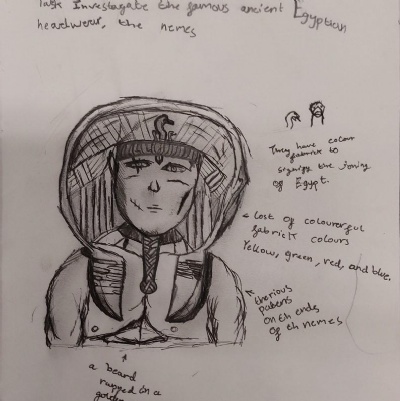 Task Investagate the famous ancient Egyptian
headwear, the nemes
They have colour
fabrick to
signify the joning
of Egypt.
Lost of colourerful
fabrick colours
Yellow, green, red, and blue.
Patens
on th ends
of th nemes
a beard
rapped in a
golden